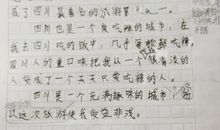 成了四川最著名的小游客人之一。
四川也是一个爱吃辣的城市，在
我去四川吃的饭中，几乎每顿都吃辣，
四川人的重口味把我从一个很清淡的
人变成了一个天天只爱吃辣的人。
四川是一个充满趣味的城市，所
以这次旅游使我受益非浅。